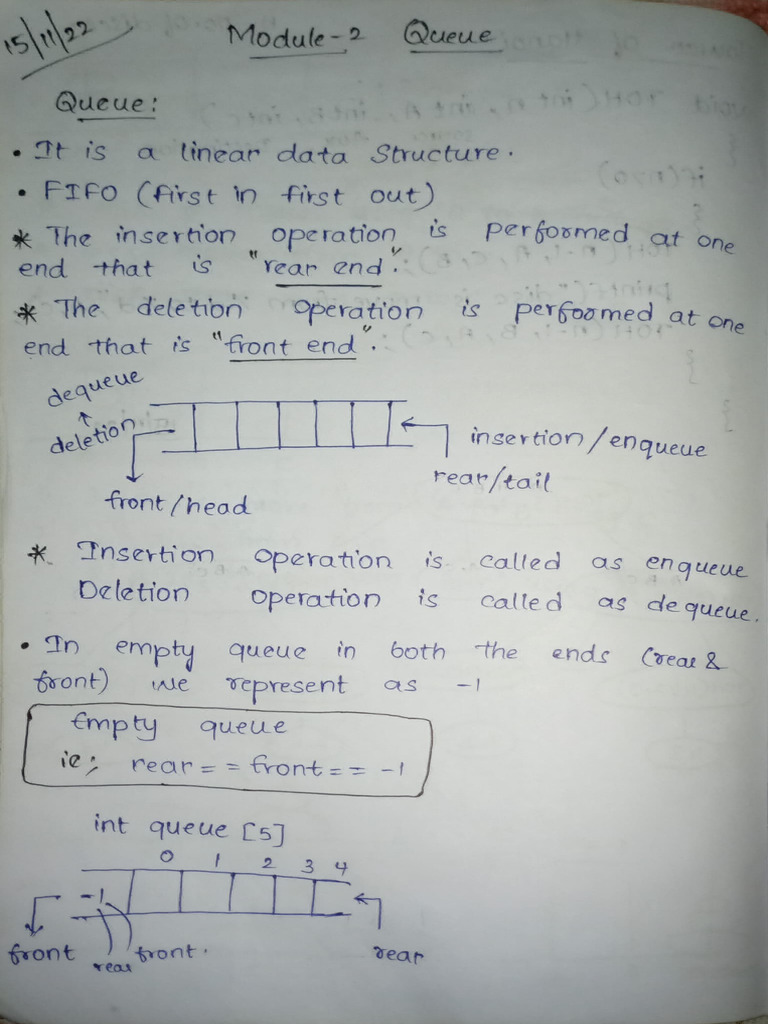 15/11/22
Module-2 Queue
Queue:
• It is a linear data Structure.
• FIFO (first in first out)
* The insertion operation is performed at one
end that is "rear end".
* The deletion operation is performed at one
end that is "front end".
dequeue
deletion
insertion/enqueue
rear/tail
front/head
* Insertion operation is called as enqueue
Deletion operation is called as dequeue.
• In empty queue in both the ends (rear &
front) we represent as -1
Empty queue
ie; rear == front == -1
int queue [5]
0 1 2 3 4
-1
front rear front. rear